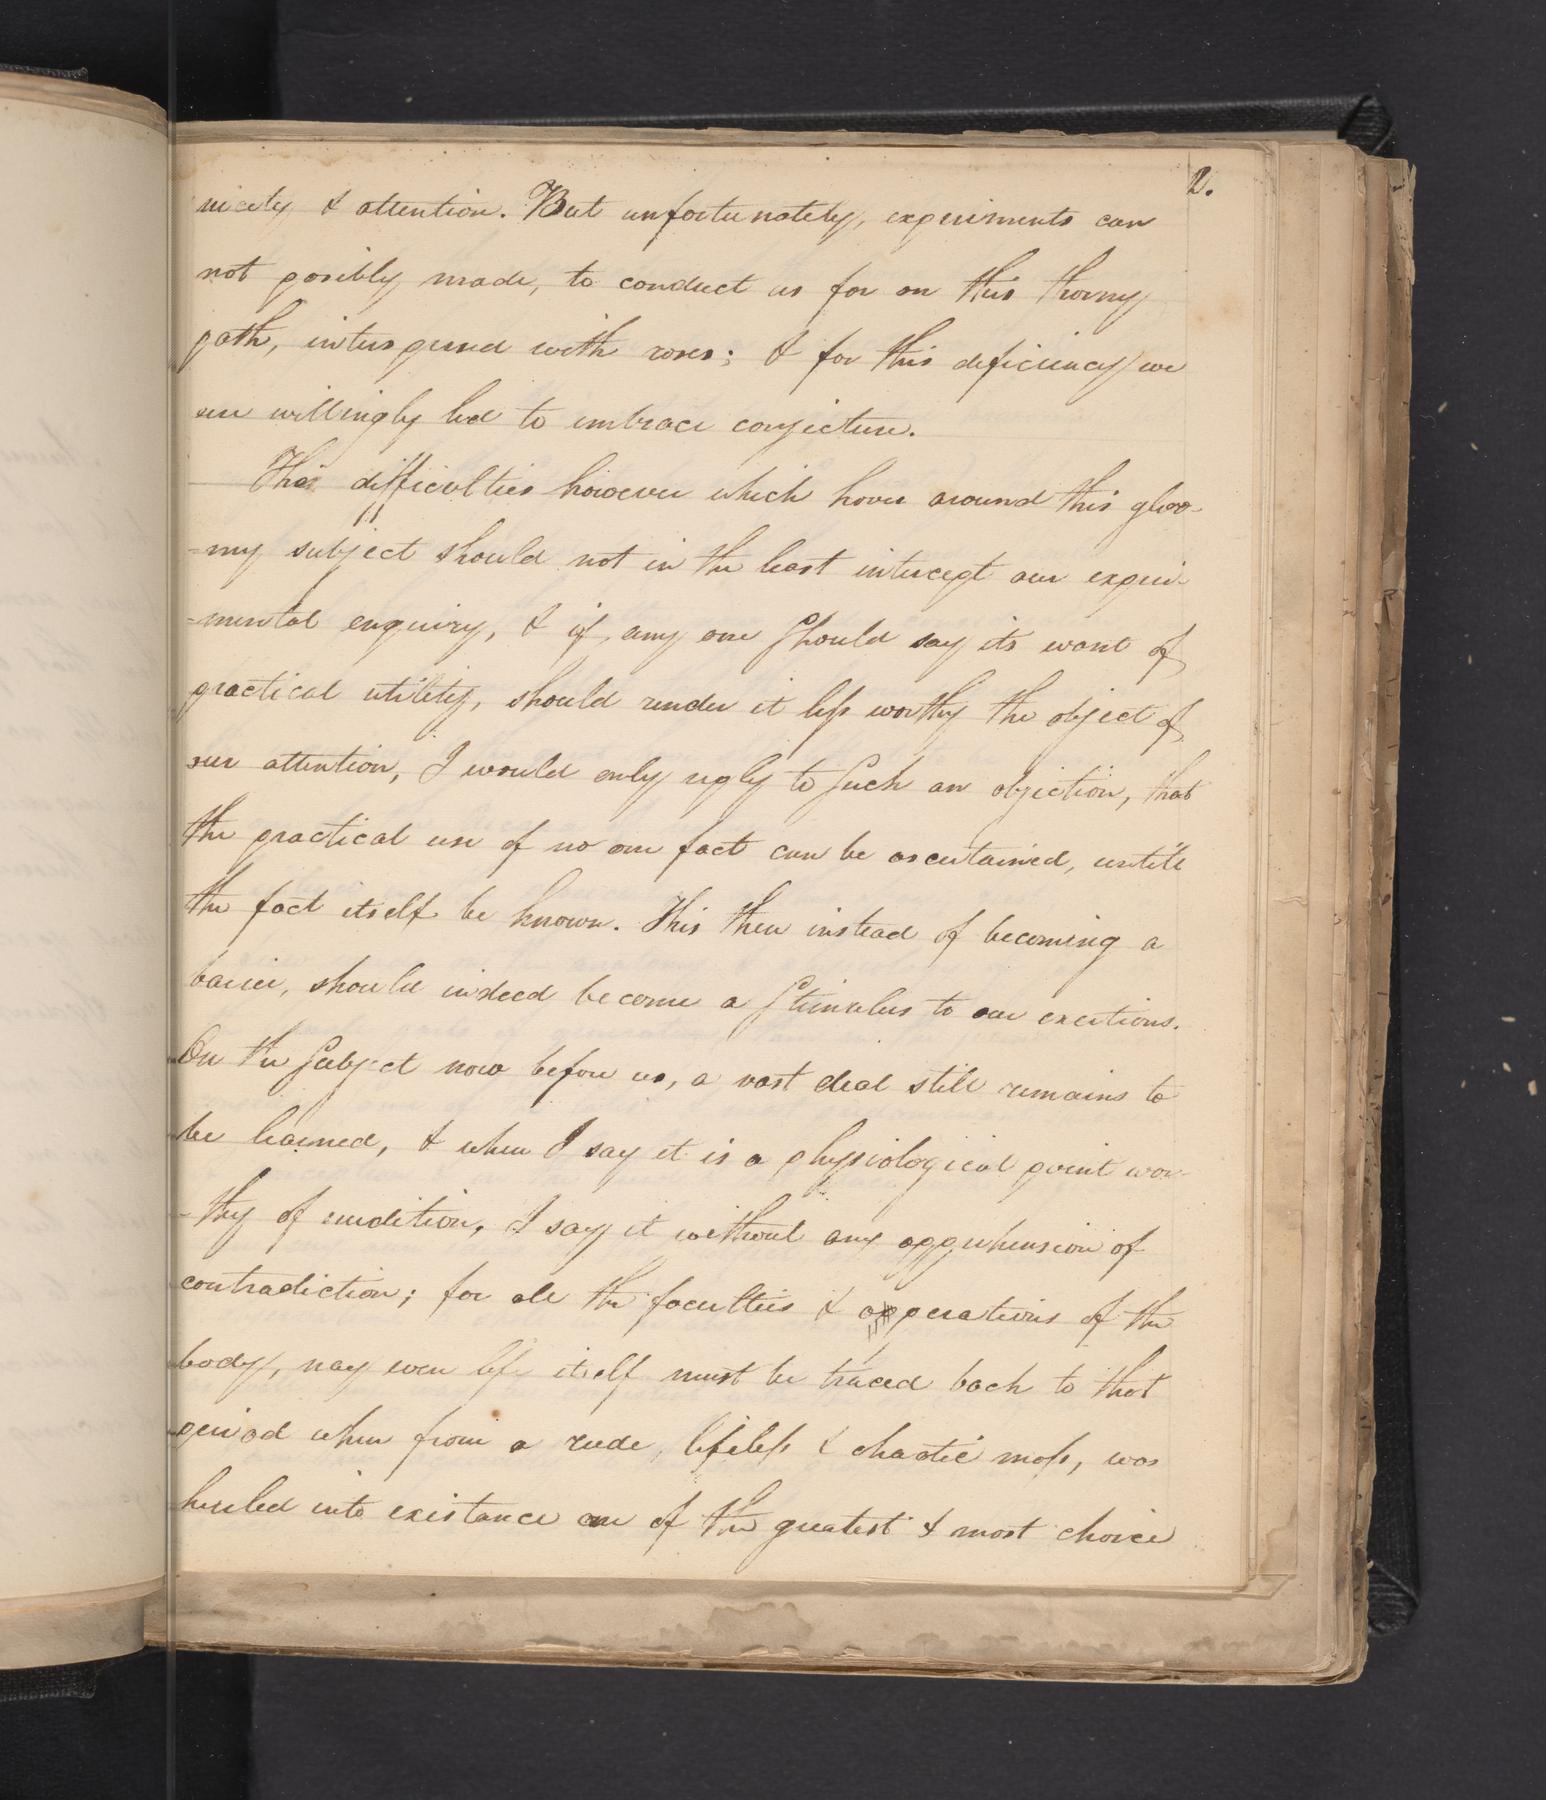 2.
nicety & attention. But unfortunately, experiments can
not posibly made, to conduct us far on this thorny
path, interspersed with roses; & for this deficiency we
are willingly led to embrace conjecture.
The difficulties however which hover around this gloo-
-my subject should not in the least intercept our experi-
-mental enquiry, & if any one should say its want of
practical utility, should render it less worthy the object of
our attention, I would only reply to such an objection, that
the practical use of no one fact can be ascertained, untill
the fact itself be known. This then instead of becoming a
barier, should indeed become a stimulus to our exertions.
On the subject now before us, a vast deal still remains to
be learned, & when I say it is a physiological point wor-
-thy of erudition, I say it without any apprehension of
contradiction; for all the faculties & opperations of the
body, nay even life itself must be traced back to that
period when from a rude, lifeless & chaotic mass, was
hurled into existance one of the greatest & most choice